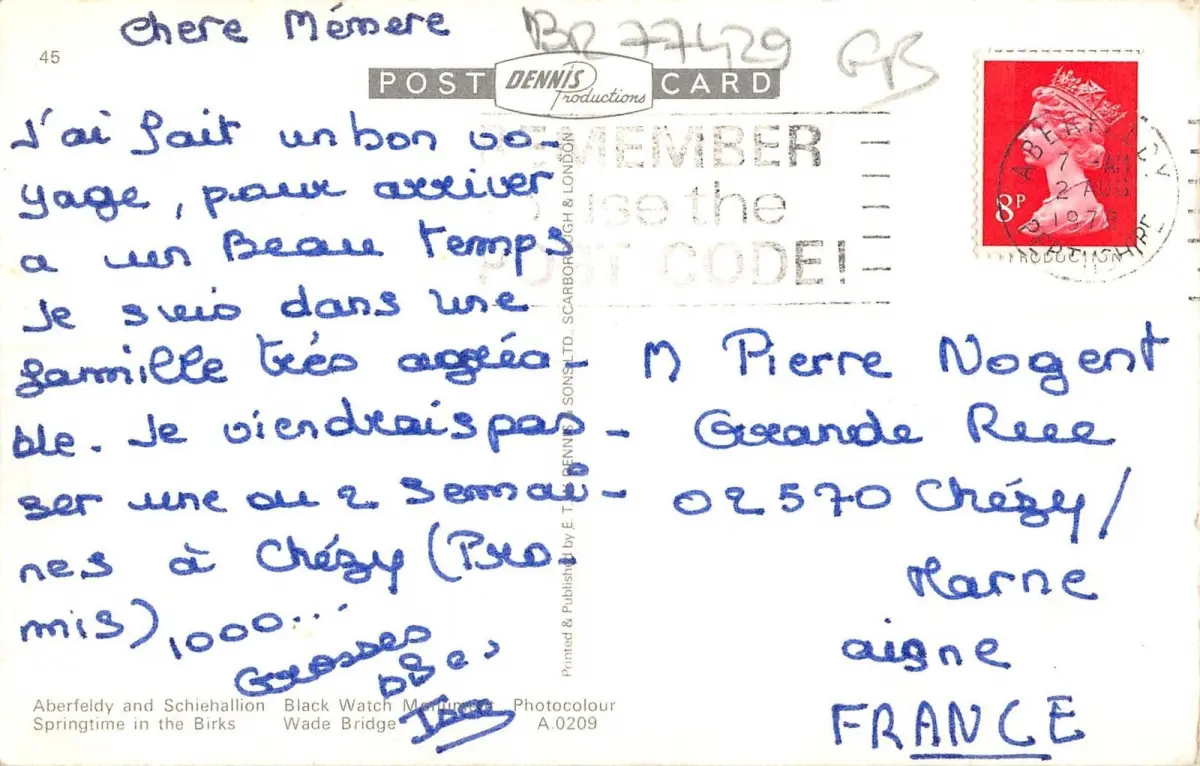 chere Mémere
BR 77429 GB
45
POST DENNIS Productions CARD
J'ai fait un bon vo-
yage, pour arriver
a un Beau temps
Je suis dans une
famille très agréa-
ble. Je viendrais pas-
ser une ou 2 semai-
nes à Chézy (Pro-
mis) 1000...
Grosses
Bses
REMEMBER
use the
POST CODE!
8P
ABERFELDY
7 - AM
2 AUG
PERTHSHIRE
M Pierre Nogent
Grande Rue
02570 Chézy/
Marne
aisne
FRANCE
Printed & Published by E. T. W. DENNIS & SONS LTD., SCARBOROUGH & LONDON
Aberfeldy and Schiehallion Black Watch Monument Photocolour
Springtime in the Birks Wade Bridge A.0209